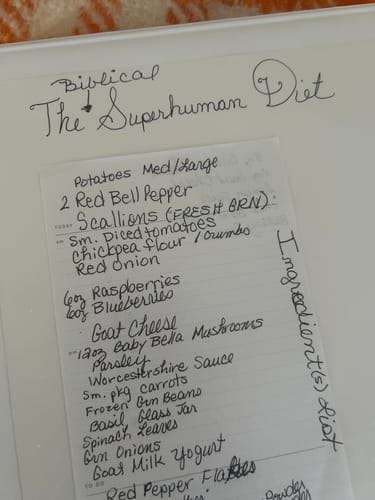 Biblical
The Superhuman Diet
Potatoes Med/Large
2 Red Bell Pepper
Scallions (FRESH GRN)
TODAY
Sm. Diced tomatoes
AM
Chickpea flour / Crumbs
Red Onion
6oz Raspberries
6oz Blueberries
Goat Cheese
PM
12oz Baby Bella Mushrooms
Parsley
Worcestershire Sauce
Sm. pkg Carrots
Frozen Grn Beans
Basil Glass Jar
Spinach Leaves
Grn Onions
Goat Milk Yogurt
TO DO
Red Pepper Flakes
Powder
Ingredient(s) List